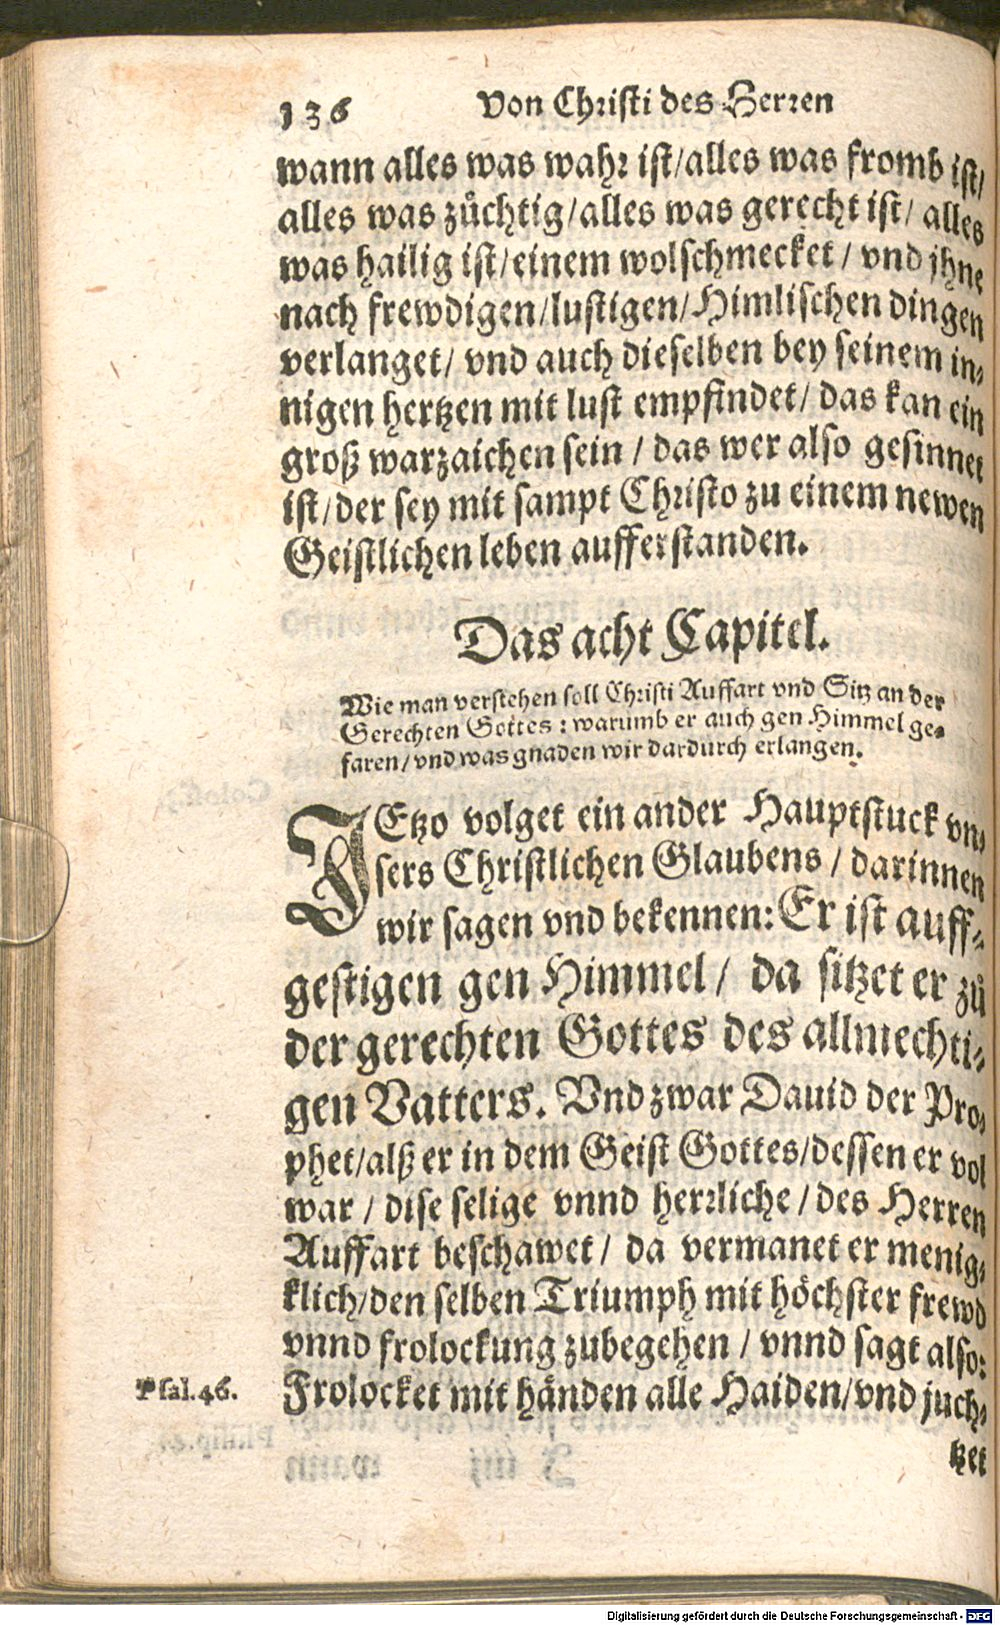 136 Von Christi des Herren
wann alles was wahr ist/alles was fromb ist/
alles was züchtig/alles was gerecht ist/ alles
was hailig ist/einem wolschmecket / vnd jhne
nach frewdigen/lustigen/Himlischen dingen
verlanget/ vnd auch dieselben bey seinem in-
nigen hertzen mit lust empfindet/ das kan ein
groß warzaichen sein / das wer also gesinnet
ist/der sey mit sampt Christo zu einem newen
Geistlichen leben aufferstanden.
Das acht Capitel.
Wie man verstehen soll Christi Auffart vnd Sitz an der
Gerechten Gottes : warumb er auch gen Himmel ge-
faren/vnd was gnaden wir dardurch erlangen.
JEtzo volget ein ander Hauptstuck vn-
sers Christlichen Glaubens / darinnen
wir sagen vnd bekennen: Er ist auff-
gestigen gen Himmel/ da sitzet er zů
der gerechten Gottes des allmechti-
gen Vatters. Vnd zwar Dauid der Pro-
phet/alß er in dem Geist Gottes/dessen er vol
war / dise selige vnnd herrliche / des Herren
Auffart beschawet/ da vermanet er menig-
klich/den selben Triumph mit höchster frewd
vnnd frolockung zubegehen / vnnd sagt also:
Psal.46. Frolocket mit händen alle Haiden/vnd juch-
tzet
Digitalisierung gefördert durch die Deutsche Forschungsgemeinschaft - DFG